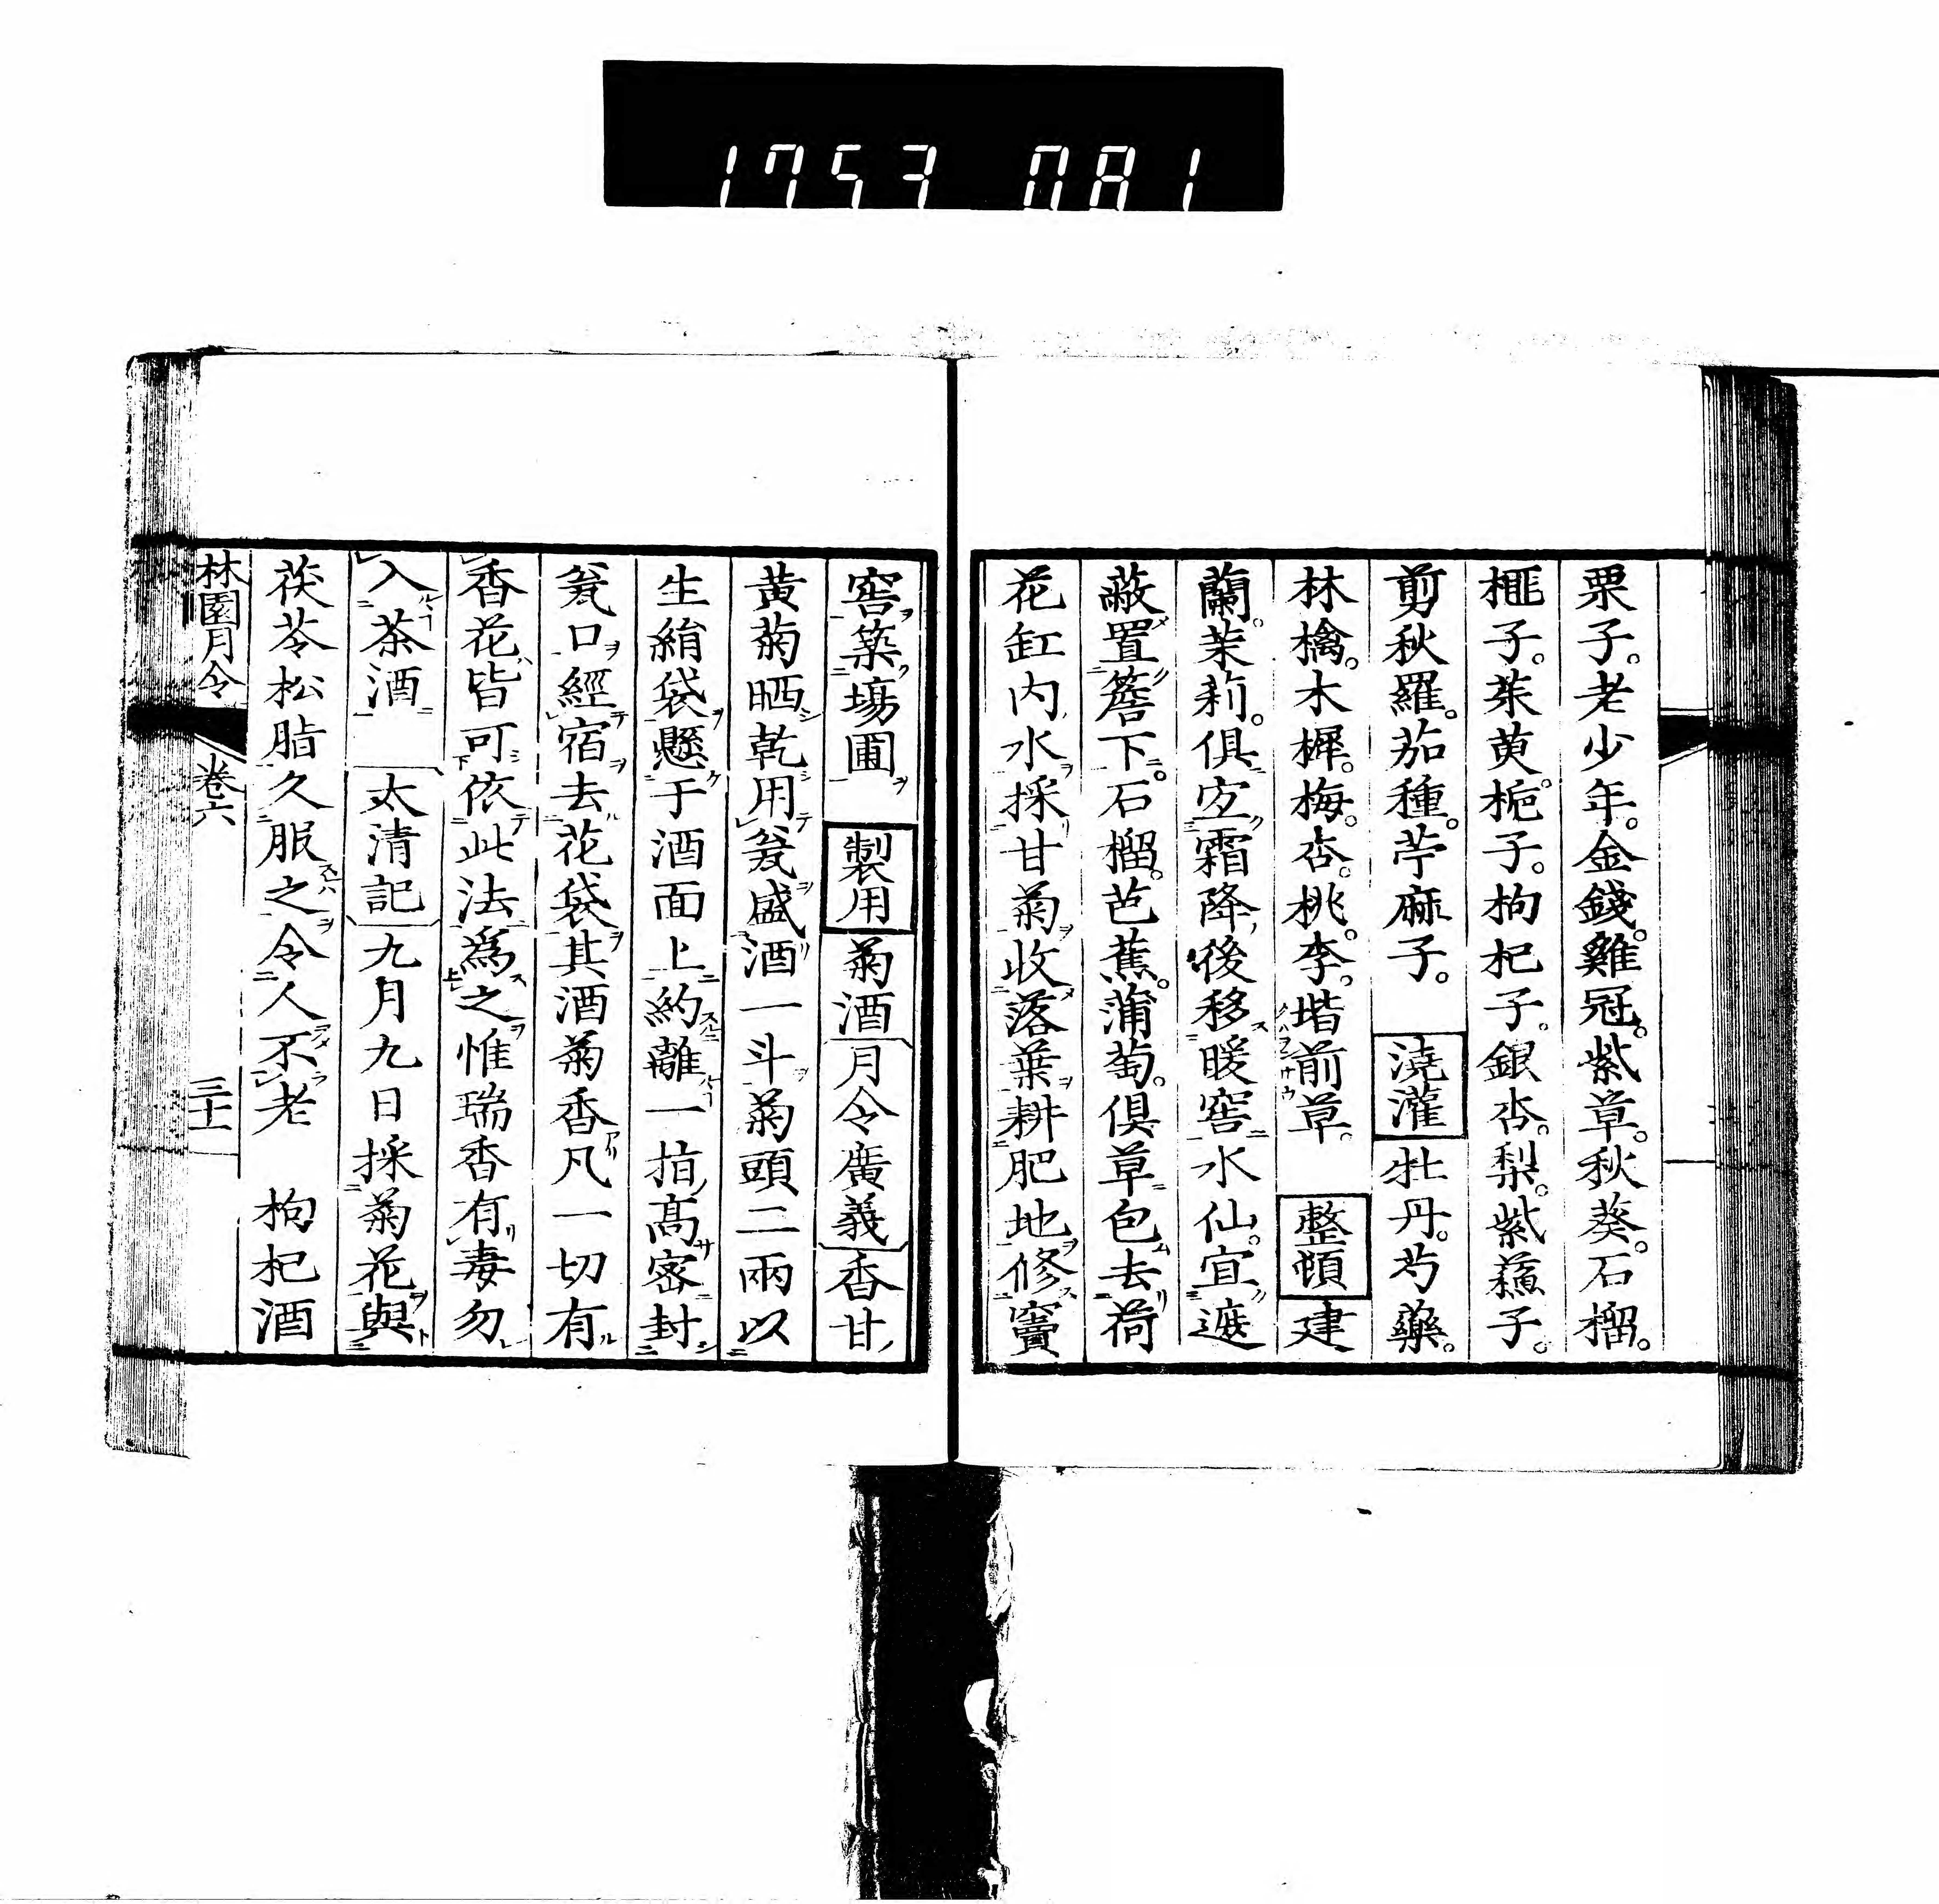 1753 081
栗子。老少年。金錢。雞冠。紫草。秋葵。石榴。
榧子。茱萸。梔子。枸杞子。銀杏。梨。紫蘓子。
剪秋羅。茄種。苧麻子。澆灌牡丹。芍藥。
林檎。木樨。梅。杏。桃。李。堦前草。整頓建
蘭。茉莉。俱宜霜降後移暖窖水仙。宜遮
蔽置簷下。石榴。芭蕉。蒲萄。俱草包去荷
花缸内水採甘菊收落葉耕肥地修竇
窖築塲圃 製用菊酒月令廣義香甘
黃菊晒乾用瓮盛酒一斗菊頭二兩以
生絹袋懸于酒面上約離一指高密封
瓮口經宿去花袋其酒菊香凡一切有
香花皆可依此法為之惟瑞香有毒勿
入茶酒 太清記九月九日採菊花與
茯苓松脂久服之令人不老 枸杞酒
林園月令 卷六 三十一